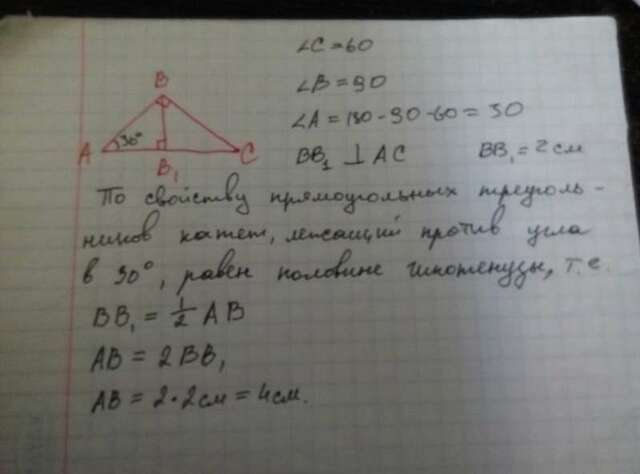 ∠C = 60
∠B = 90
∠A = 180 - 90 - 60 = 30
BB₁ ⊥ AC BB₁ = 2 см
B
A 30° B₁ C
По свойству прямоугольных треуголь-
ников катет, лежащий против угла
в 30°, равен половине гипотенузы, т.е.
BB₁ = 1/2 AB
AB = 2BB₁
AB = 2·2см = 4см.